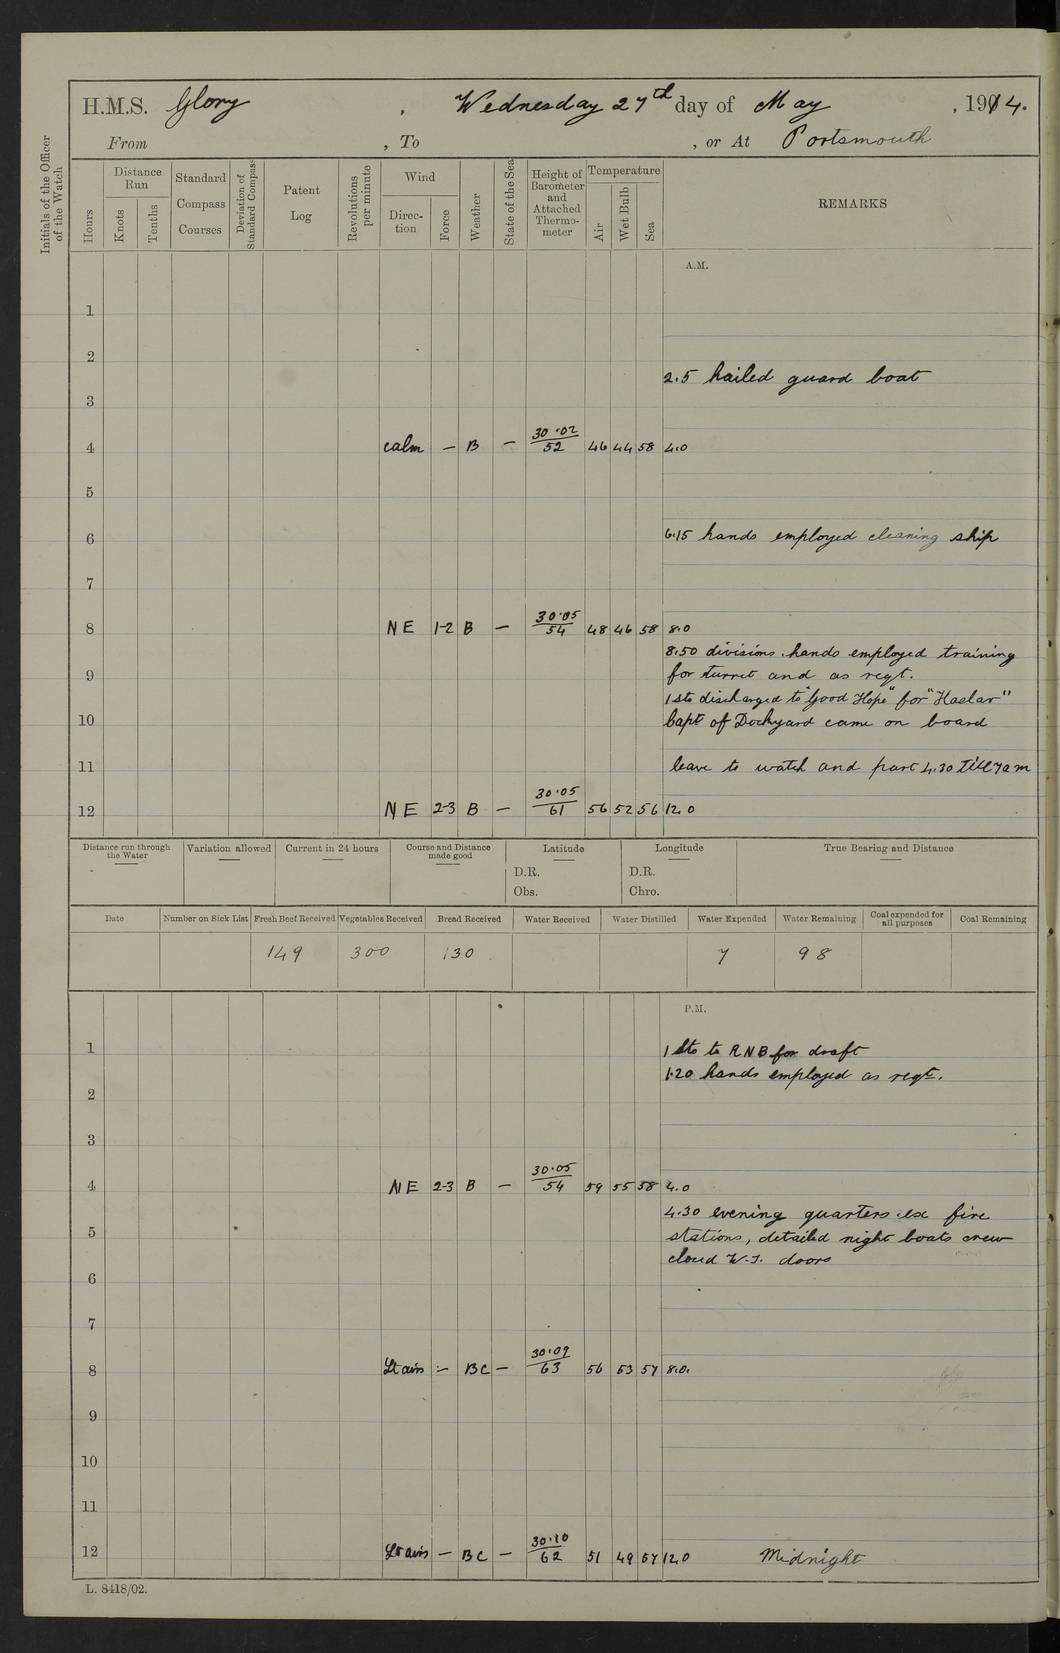 H.M.S. Glory , Wednesday 27th day of May , 1914.
From , To , or At Portsmouth
Initials of the Officer of the Watch
Hours
Distance Run
Knots
Tenths
Standard Compass Courses
Deviation of Standard Compass
Patent Log
Revolutions per minute
Wind
Direc-tion
Force
Weather
State of the Sea
Height of Barometer and Attached Thermo-meter
Temperature
Air
Wet Bulb
Sea
REMARKS
A.M.
1
2
2.5 hailed guard boat
3
4 calm — B — 30.02/52 46 44 58 4.0
5
6 6.15 hands employed cleaning ship
7
8 NE 1-2 B — 30.05/54 48 46 58 8.0
8.50 divisions. hands employed training
9 for turret and as reqt.
1 sto discharged to "Good Hope" for "Haslar"
10 Capt of Dockyard came on board
11 leave to watch and part 4.30 till 7am
12 NE 2-3 B — 30.05/61 56 52 56 12.0
Distance run through the Water
Variation allowed
Current in 24 hours
Course and Distance made good
Latitude
D.R.
Obs.
Longitude
D.R.
Chro.
True Bearing and Distance
Date Number on Sick List Fresh Beef Received Vegetables Received Bread Received Water Received Water Distilled Water Expended Water Remaining Coal expended for all purposes Coal Remaining
149 300 130 7 98
P.M.
1 1 Sto to RNB for draft
1.20 hands employed as reqt.
2
3
4 NE 2-3 B — 30.05/54 59 55 58 4.0
4.30 evening quarters ex fire
5 stations, detailed night boats crew
closed W.T. doors
6
7
8 Lt airs — BC — 30.09/63 56 53 57 8.0.
9
10
11
12 Lt airs — BC — 30.10/62 51 49 57 12.0 Midnight
L. 8418/02.